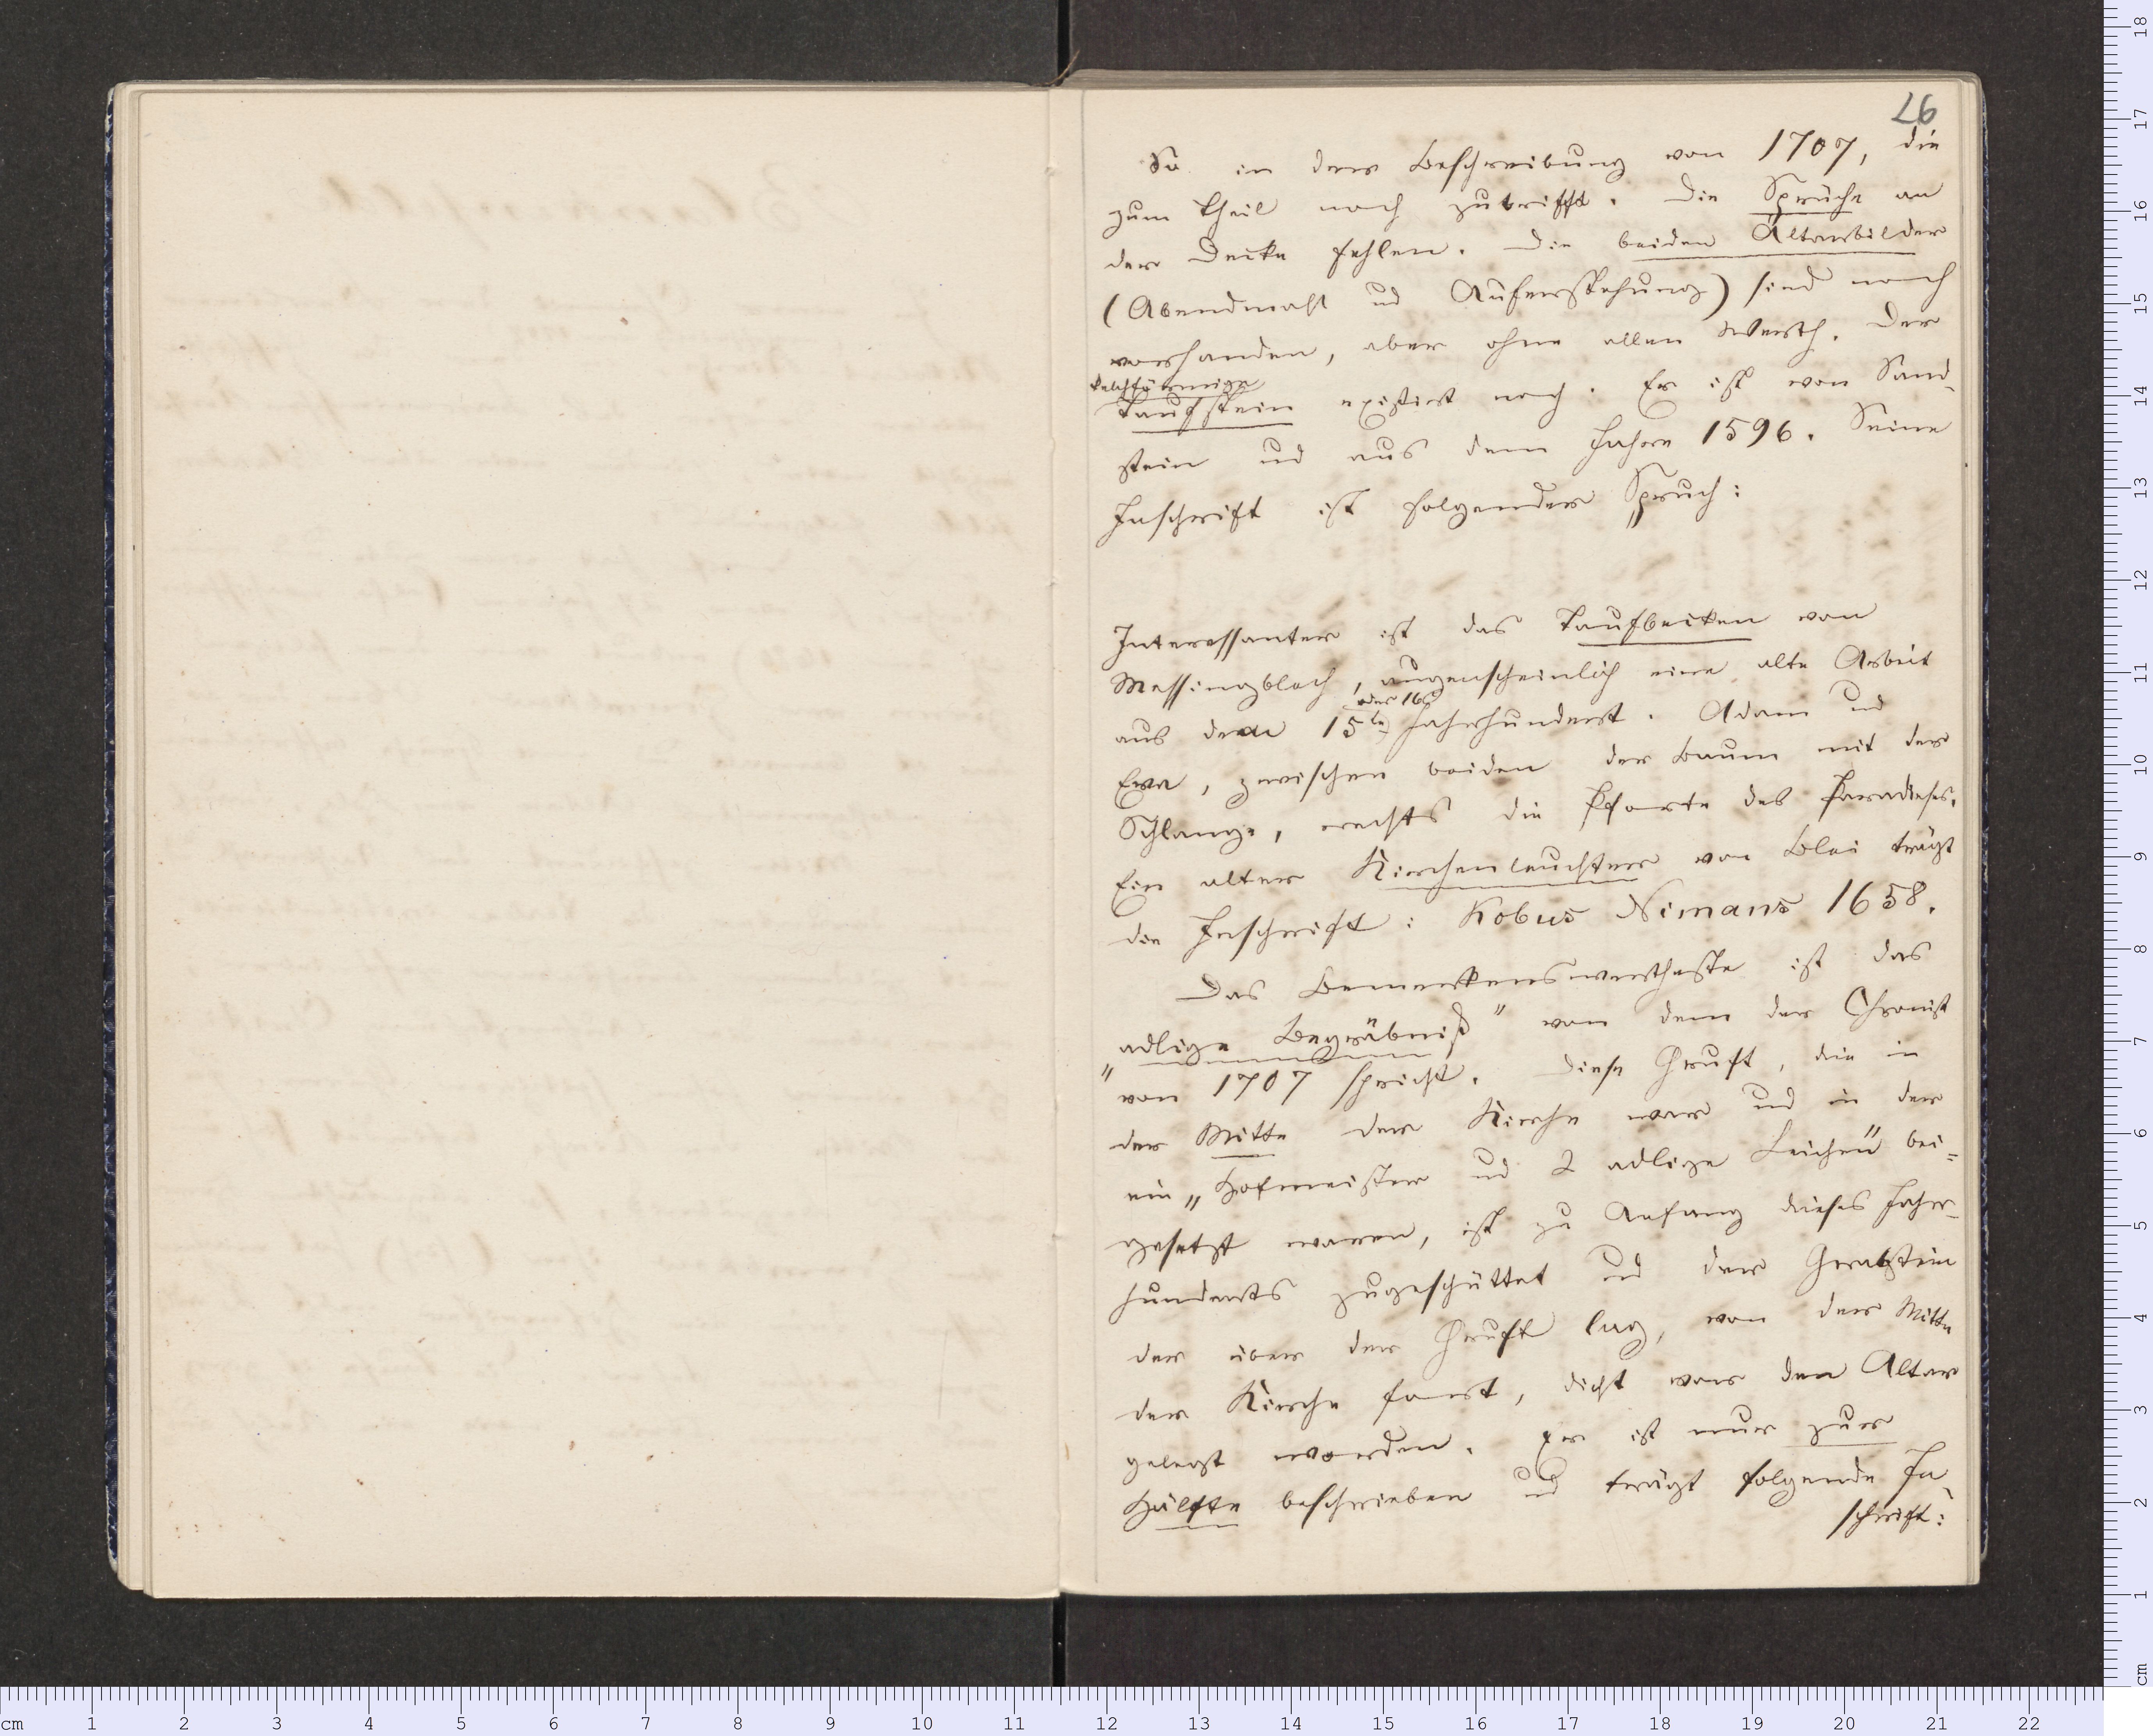 26
So in der Beschreibung von 1707, die
zum Theil noch zutrifft. Die Sprüche an
der Decke fehlen. Die beiden Altarbilder
(Abendmahl ud Auferstehung) sind noch
vorhanden, aber ohne allen Werth. Der
kelchförmige
Taufstein existirt noch. Er ist von Sand-
stein ud aus dem Jahre 1596. Seine
Inschrift ist folgender Spruch:
Interessanter ist das Taufbecken von
Messingblech, augenscheinlich eine alte Arbeit
oder 16
aus dem 15te Jahrhundert. Adam ud
Eva, zwischen beiden der Baum mit der
Schlange, rechts die Pforte des Paradieses.
Ein alter Kirchenleuchter von Blei trägt
die Inschrift: Kobus Nimans 1658.
Das Bemerkenswertheste ist das
„adlige Begräbniß" von dem der Chronist
von 1707 spricht. Diese Gruft, die in
der Mitte der Kirche war ud in der
ein „Hofmeister ud 2 adlige Leichen" bei=
gesetzt waren, ist zu Anfang dieses Jahr-
hunderts zugeschüttet ud der Grabstein
der über der Gruft lag, von der Mitte
der Kirche fort, dicht vor den Altar
gelegt worden. Er ist nur zur
Hälfte beschrieben ud trägt folgende In
schrift: